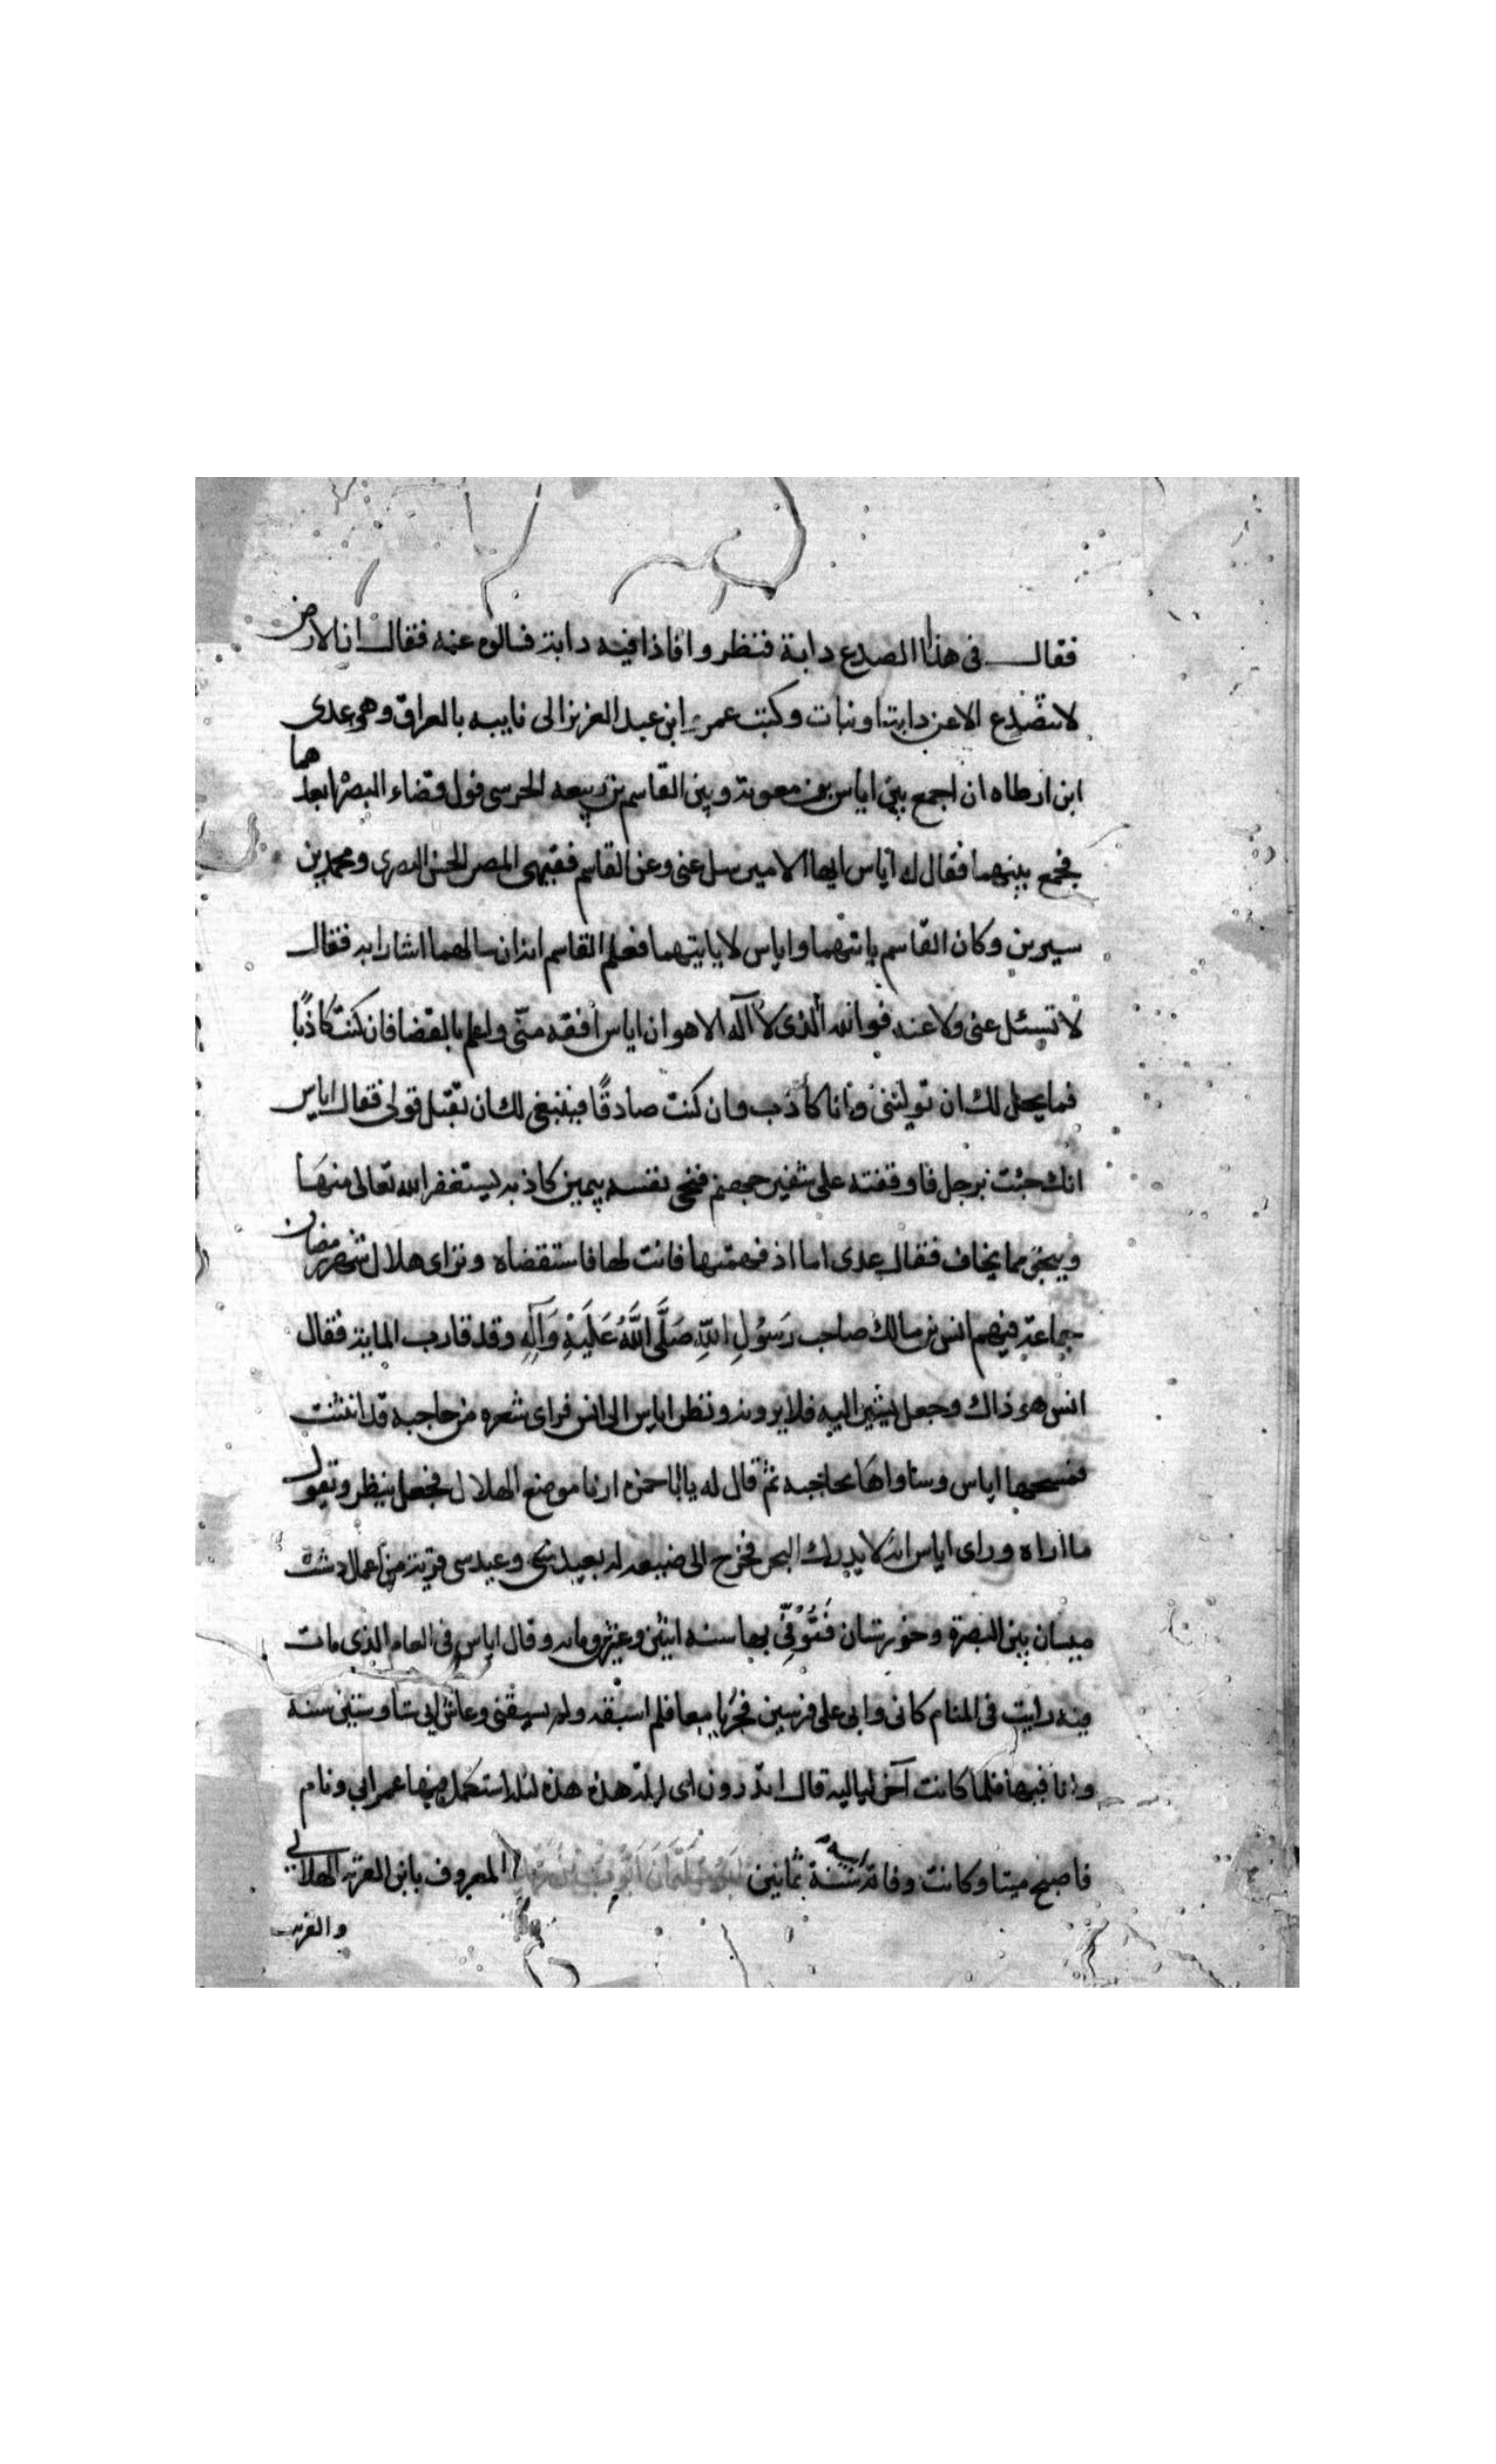 فقال في هذا الصدع دابة فنظروا فاذا فيه دابة فسالوه عنه فقال ان الارض
لا تنصدع الا عن دابة او نبات وكتب عمر ابن عبد العزيز الى نايبه بالعراق وهو عدى
ابن ارطاه ان اجمع بين اياس بن معوية وبين القاسم بن ربيعه الحرسى فول قضاء البصرة انفذهما
فجمع بينهما فقال له اياس ايها الامير سل عنى وعن القاسم فقيهى المصر الحسن البصرى ومحمد بن
سيرين وكان القاسم ياتيهما واياس لا ياتيهما فعلم القاسم انه ان سالهما اشارا به فقال
لا تسئل عنى ولا عنه فوالله الذى لا اله الا هو ان اياس افقه منّى واعلم بالقضا فان كنت كاذبًا
فما يحل لك ان توليننى وانا كاذب وان كنت صادقًا فينبغى لك ان تقبل قولى فقال اياس
انك جئت برجل فاوقفته على شفير جهنم فنجى نفسه بيمين كاذبه يستغفر الله تعالى منها
وينجى مما يخاف فقال عدى اما اذ فهمتها فانت لها فاستقضاه وتراى هلال شهر رمضان
جماعة فيهم انس بن مالك صاحب رَسُولِ اللهِ صَلَّى اللهُ عَلَيْهِ وَآلِهِ وقد قارب الماية فقال
انس هو ذاك وجعل يشير اليه فلا يرونه ونظر اياس الى انس فراى شعره من حاجبه قد انثنت
فمسحها اياس وساواها بحاجبه ثم قال له يا ابا حمزه ارنا موضع الهلال فجعل ينظر ويقول
ما اراه وراى اياس انه لا يدرك البحر فخرج الى ضيعه له بعبدسى وعبدسى قرية من اعمال دشت
ميسان بين البصرة وخوزستان فَتُوُفِّى بها سنه اثنين وعشرين ومايه وقال اياس فى العام الذى مات
فيه رايت فى المنام كانى وابى على فرسين فجريا معا فلم اسبقه ولم يسبقنى وعاش ابى ستا وسبعين سنة
وانا فيها فلما كانت آخر لياليه قال اتدرون اى ليلة هذه هذه ليلة استكمل فيها عمر ابي ونام
فاصبح ميتا وكانت وفاة ابيه سنة ثمانين المعروف بابن القرية الهلالى
والقرية